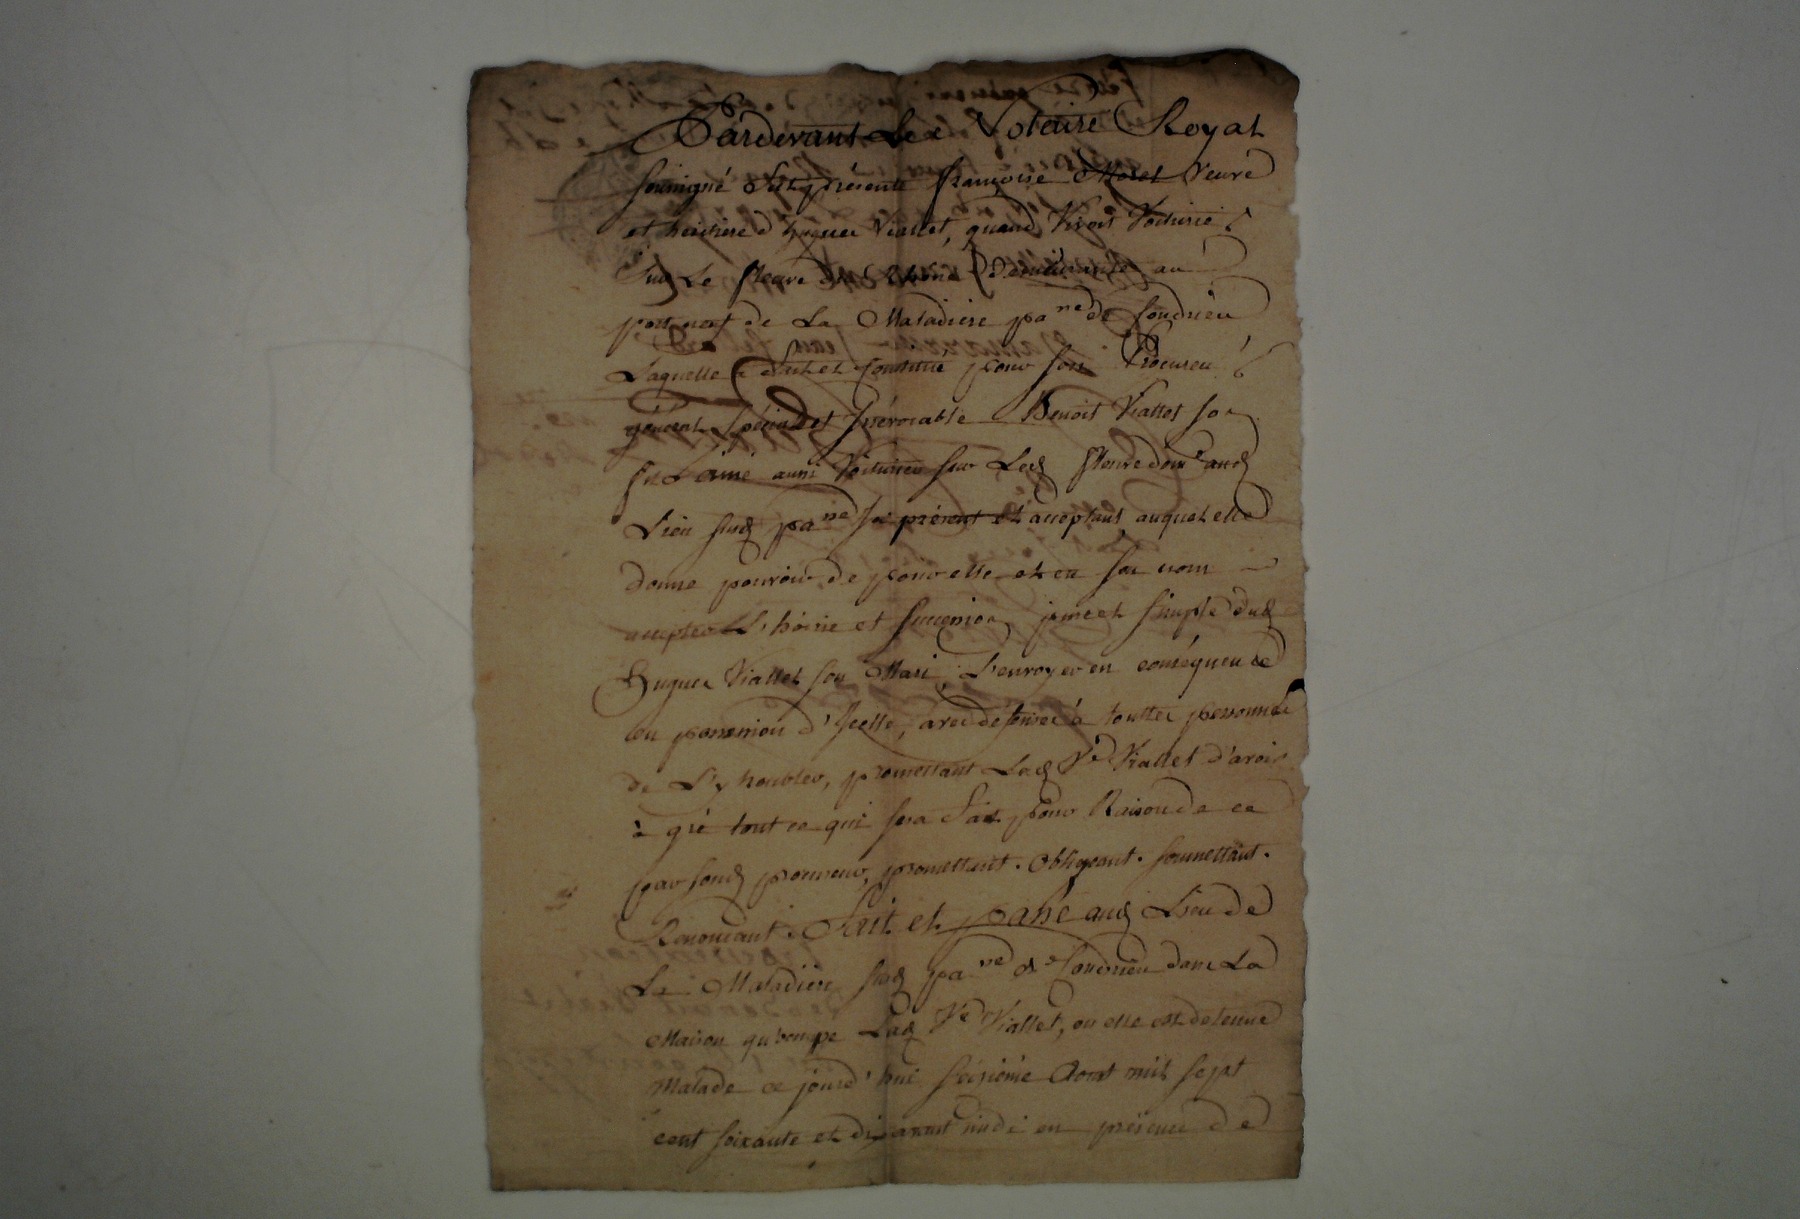 Pardevant Le Notaire Royal
soussigné fut présente françoise Morel Veuve
et héritiere d'hugues Viallet, quand vivoit Voiturier
sur Le fleuve du Rhône Demeurante au
port neuf de La Maladiere pa.ne de Condrieu
Laquelle a fait et constitué pour son Procureur
général spécial et irrévocable Benoit Viallet son
fils ainé aussi Voiturier sur Led fleuve dem.t aud
Lieu susd pa.ne ici présent et acceptant auquel elle
donne pouvoir de pour elle et en son nom
accepter L'hoirie et succession pure et simple dud
Hugues Viallet son Mari, L'envoyer en conséquence
en possession d'Icelle, avec défenses à touttes personnes
de L'y troubler, promettant Lad Ve Viallet d'avoir
à gré tout ce qui sera fait pour Raison de ce
par sond procureur, promettant. obligeant. soumettant.
Renonçant. Fait et passé aud Lieu de
La Maladiere susd pa.ne de Condrieu dans La
Maison qu'occupe Lad Ve Viallet, ou elle est detenue
Malade ce jourd'hui seizième Aout mil sept
cent soixante et dix avant midi en présence de